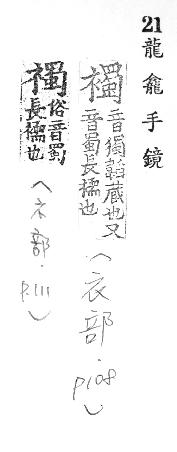 21 龍龕手鏡
襡
音獨韜藏也又
音蜀長襦也
(衣部·p108)
俗音蜀
長襦也
(礻部·p.111)